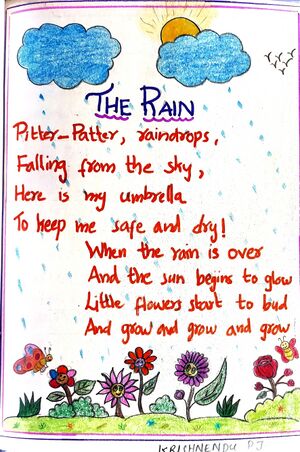 THE RAIN
Pitter-Patter, raindrops,
Falling from the sky,
Here is my umbrella
To keep me safe and dry!
When the rain is over
And the sun begins to glow
Little flowers start to bud
And grow and grow and grow
KRISHNENDU PJ